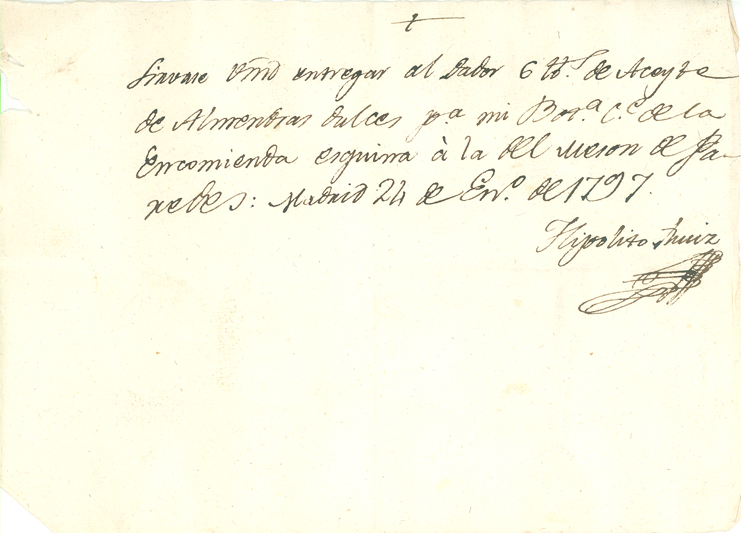 Sirvase Vmd entregar al Dador 6 lb.s de Aceyte
de Almendras dulces pa mi Bota C.e de la
Encomienda esquina à la del Meson de Pa-
redes: Madrid 24 de En.o de 1797.
Hipolito Ruiz